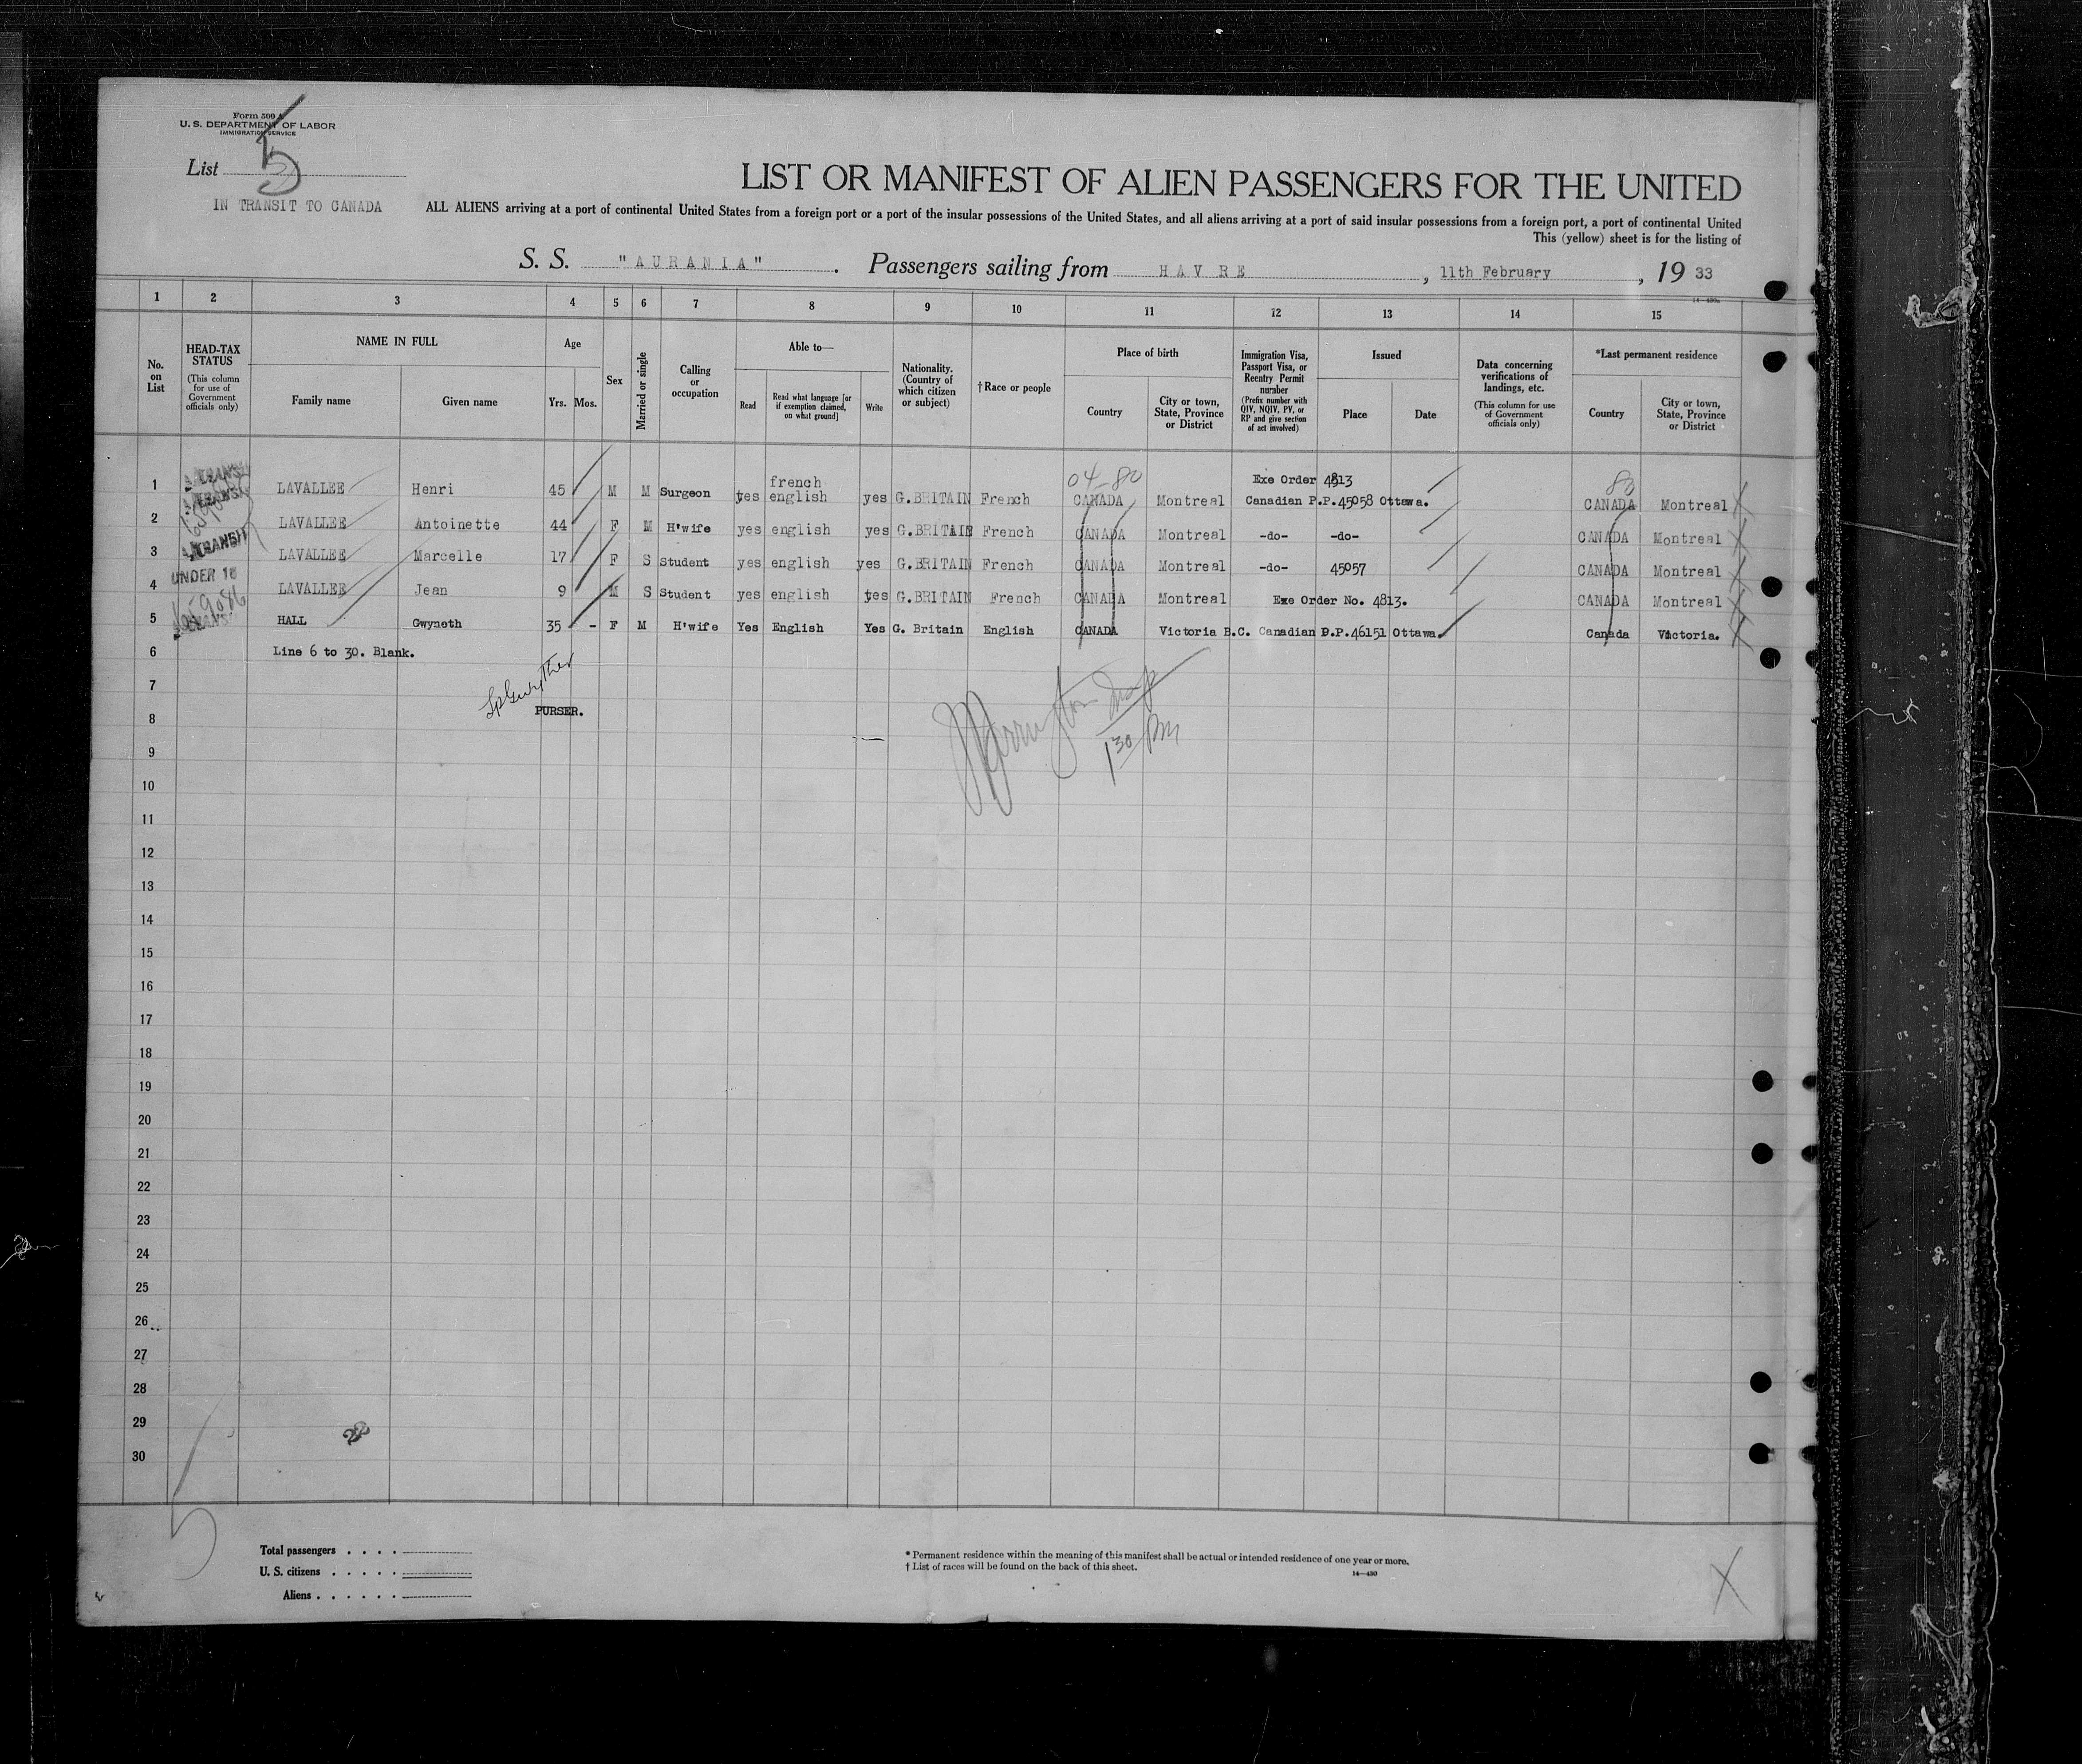 Form 500 A
U. S. DEPARTMENT OF LABOR
IMMIGRATION SERVICE
List 5
IN TRANSIT TO CANADA
LIST OR MANIFEST OF ALIEN PASSENGERS FOR THE UNITED
ALL ALIENS arriving at a port of continental United States from a foreign port or a port of the insular possessions of the United States, and all aliens arriving at a port of said insular possessions from a foreign port, a port of continental United
This (yellow) sheet is for the listing of
S. S. "AURANIA". Passengers sailing from HAVRE, 11th February, 19 33
1 2 3 4 5 6 7 8 9 10 11 12 13 14 15
No. on List
HEAD-TAX STATUS (This column for use of Government officials only)
NAME IN FULL Family name Given name
Age Yrs. Mos.
Sex
Married or single
Calling or occupation
Able to— Read Read what language [or if exemption claimed, on what ground] Write
Nationality. (Country of which citizen or subject)
†Race or people
Place of birth Country City or town, State, Province or District
Immigration Visa, Passport Visa, or Reentry Permit number (Prefix number with QIV, NQIV, PV, or RP and give section of act involved)
Issued Place Date
Data concerning verifications of landings, etc. (This column for use of Government officials only)
*Last permanent residence Country City or town, State, Province or District
04-80 Exe Order 4813 80
french
1 LAVALLEE Henri 45 M M Surgeon yes english yes G.BRITAIN French CANADA Montreal Canadian P.P.45058 Ottawa. CANADA Montreal
2 LAVALLEE Antoinette 44 F M H'wife yes english yes G.BRITAIN French CANADA Montreal -do- -do- CANADA Montreal
3 TRANSIT LAVALLEE Marcelle 17 F S Student yes english yes G.BRITAIN French CANADA Montreal -do- 45057 CANADA Montreal
UNDER 16
4 LAVALLEE Jean 9 M S Student yes english yes G.BRITAIN French CANADA Montreal Exe Order No. 4813. CANADA Montreal
5 HALL Gwyneth 35 - F M H'wife Yes English Yes G. Britain English CANADA Victoria B.C. Canadian P.P.46151 Ottawa. Canada Victoria.
6 Line 6 to 30. Blank.
7
PURSER.
8
1 30 PM
9
10
11
12
13
14
15
16
17
18
19
20
21
22
23
24
25
26
27
28
29
30
5
Total passengers . . . .
U. S. citizens . . . . .
Aliens . . . . . .
* Permanent residence within the meaning of this manifest shall be actual or intended residence of one year or more.
† List of races will be found on the back of this sheet.
14—430
X